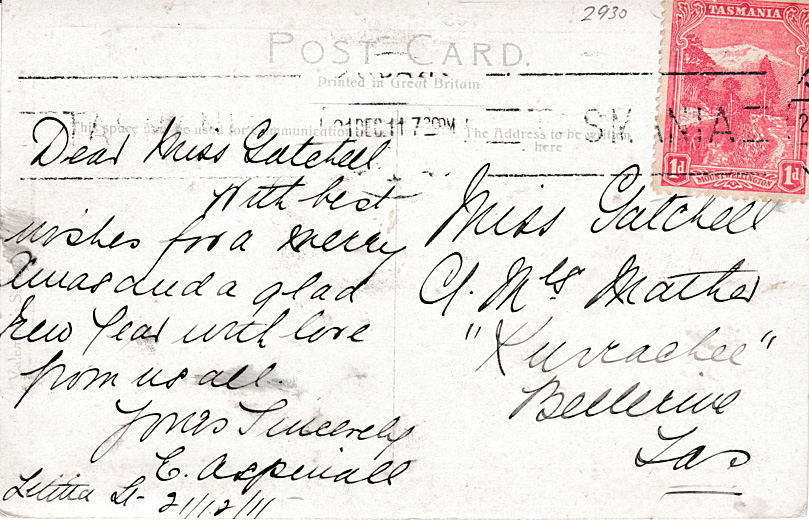 2930
TASMANIA
POST CARD.
Printed in Great Britain
This space may be used for communication
The Address to be written
here
21 DEC. 11 7 30PM
TASMANIA
1d
MOUNT WELLINGTON
1d
Dear Miss Gatchell
With best
wishes for a merry
Xmas and a glad
New Year with love
from us all.
Yours Sincerely
E. Aspinall
Letitia St- 21/12/11
Miss Gatchell
C/. Mrs Mather
"Kurrachee"
Bellerive
Tas